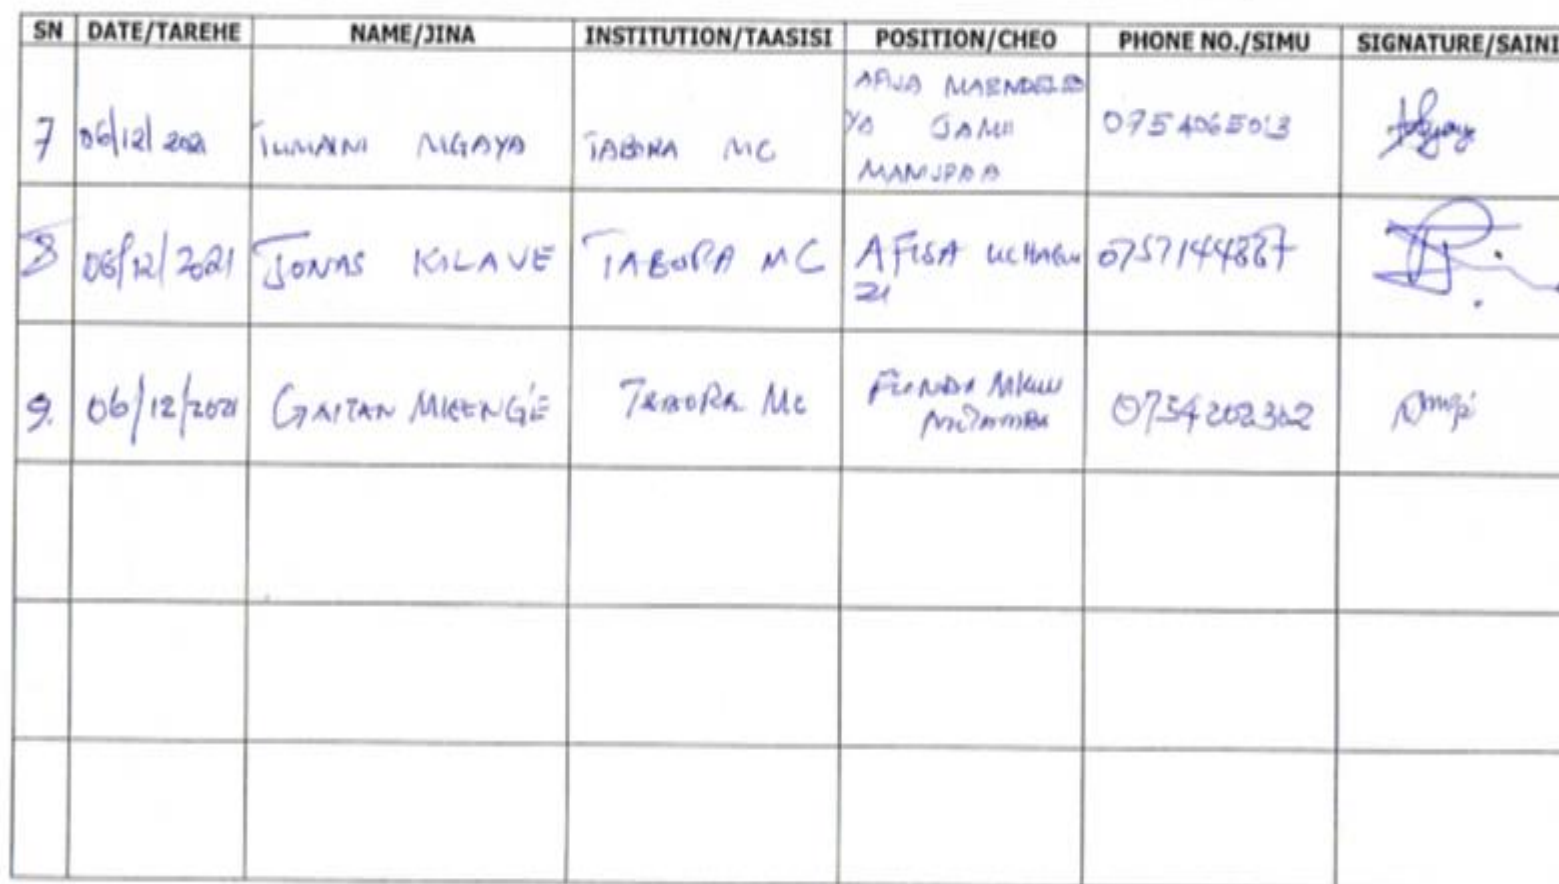 SN DATE/TAREHE NAME/JINA INSTITUTION/TAASISI POSITION/CHEO PHONE NO./SIMU SIGNATURE/SAINI
7 06/12/2021 TUMAINI MGAYA TABORA MC AFISA MAENDELEO
YA JAMII
MANISPAA 0754065013
8 06/12/2021 JONAS KILAVE TABORA MC AFISA UCHAGU
ZI 0757144887
9. 06/12/2021 GAITAN MKENGE TABORA MC FUNDI MKUU
MITAMBO 0754202302